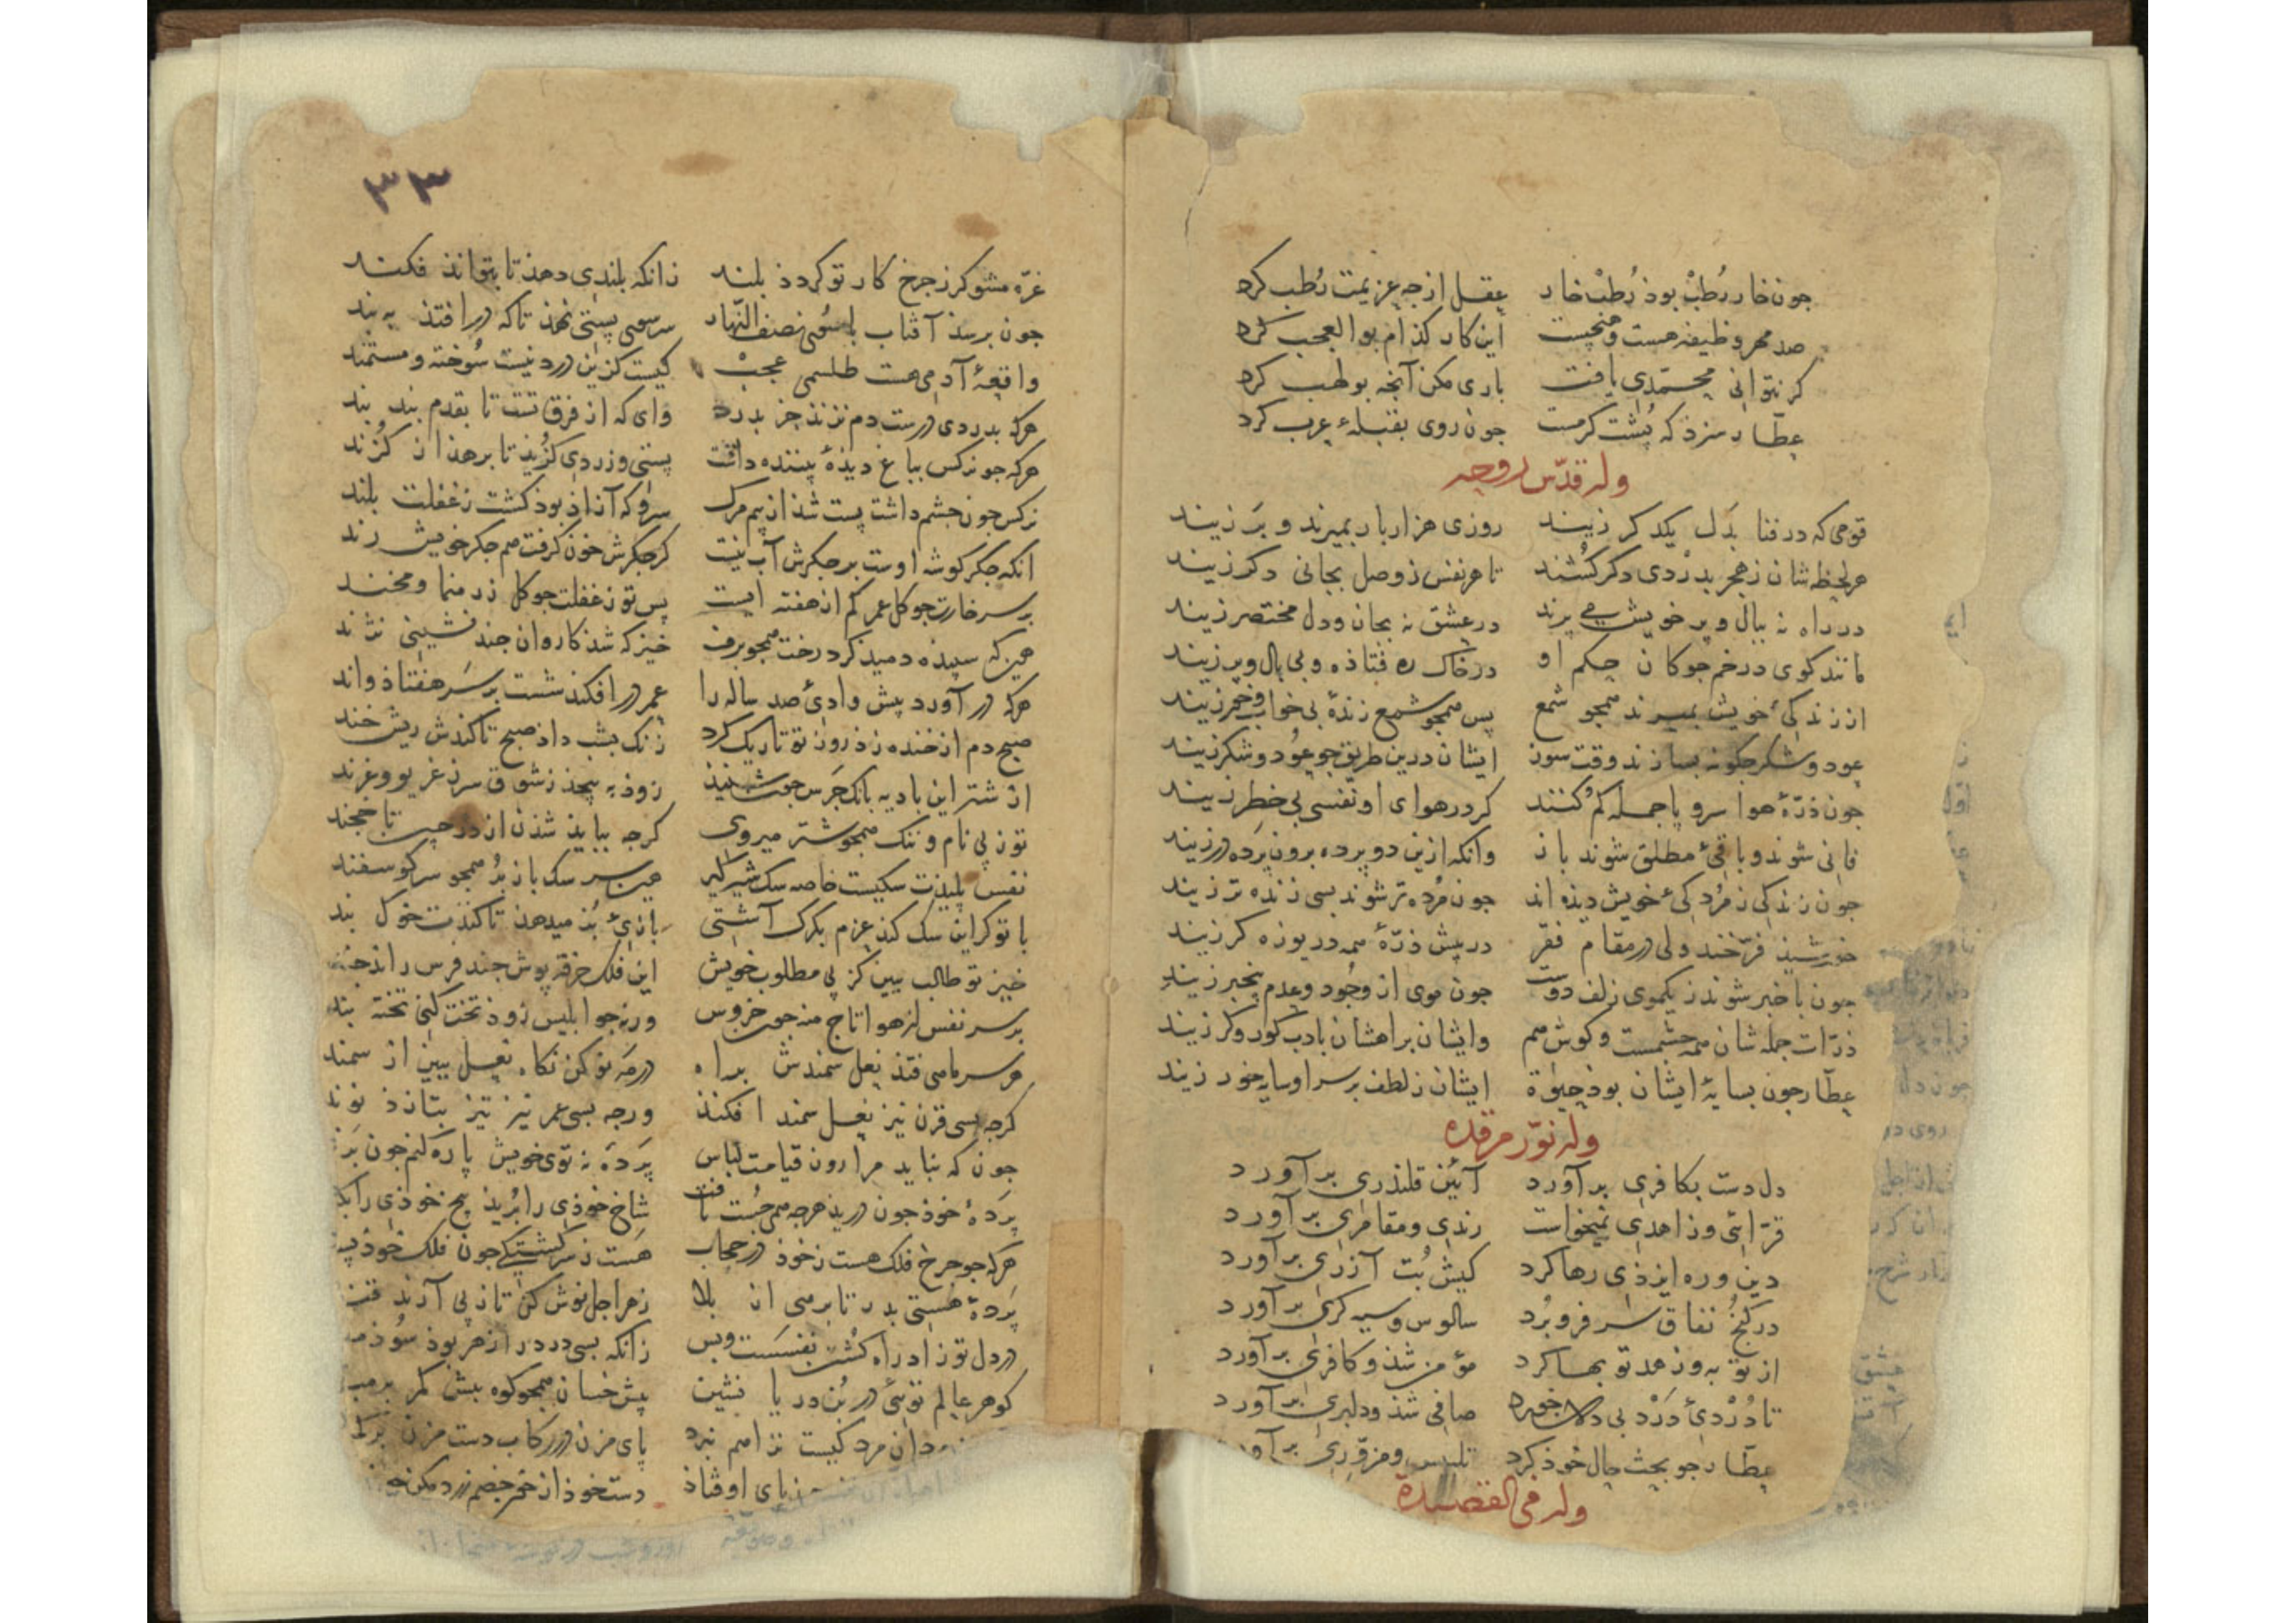 جون خار رُطبْ بوذ رُطبْ خار عقل از جه عزیمت رُطب کرد
صد مهر وظیفه هست و هیچست این کار کذام بوالعجب کرد
کر نتوانی محمّدی یافت باری مکن آنجه بولهب کرد
عطّار سزد که پُشت کرمست جون روی بقبلهٔ عرب کرد
وله قدّس روحه
قومی که در فنا بدَل یکدکر زیند روزی هزار بار بمیرند و بر زیند
هر لحظه شان ز هجر بدرْدی دکر کُشند تا هر نفس ز وصل بجانی دکر زیند
در راه نه ببال و پر خویش می پرند در عشق نه بجان و دل مختصر زیند
مانند کوی در خم جوکان حکم او در خاک ره فتاذه و بی بال و پر زیند
از زندکیٔ خویش بمیرند همجو شمع پس همجو شمع زندهٔ بی خواب و خور زیند
عود و شکر جکونه بسازند وقت سوز ایشان درین طریق جو عوُد و شکر زیند
جون ذرّهٔ هوا سر و پا جمله کم کُنند کر در هوای او نفسی بی خطر زیند
فانی شوند و باقیٔ مطلق شوند باز وانکه ازین دو پرده برون پَرده در زیند
جون زندکی ز مُردکیٔ خویش دیذه اند جون مُرده تر شوند بسی زنده تر زیند
خورشیذ فرّخند ولی در مقام فقر در بیش ذرّهٔ همه دریوزه کر زیند
جون با خبر شوند ز یکموی زلف دوست جون موی از وجُود و عدم بیخبر زیند
ذرّات جمله شان همه جشمست و کوش هم وایشان براهشان بادب کور و کر زیند
عطّار جون بسایهٔ ایشان بوذ حیوٰة ایشان ز لطف بر سر او سایه خور زیند
وله نوّر مرقده
دل دست بکافری برآورد آئین قلندری برآورد
قرّائی و زاهدی نمیخواست رندی و مقامری برآورد
دین و ره ایزذی رها کرد کیش بُت آزری برآورد
در کنجُ نفاق سر فرو بُرد سالوس و سیه کری برآورد
از توبه و زهد توبها کرد مؤمن شذ و کافری برآورد
تا دُرْدیٔ دَرْد بی دلان خورد صافی شذ و دلبری برآورد
عطّار جو بحث حال خوذ کرد تلبیس و مزوّری برآورد
وله فی القصیدة
٣٣
غرّه مشو کر ز جرخ کار تو کردذ بلند زانکه بلندی دهذ تا بتوانذ فکند
جون برسذ آفتاب باستوی نصف النّهار سر سوی پستی نهذ تا که در افتذ به بند
واقعهٔ آدمی هست طلسمی عجبْ کیست کزین درد نیست سُوخته و مستمند
هرکه بدردی درست دم نزنذ جز بدرد وای که از فرق تست تا بقدم بند بند
هرکه جو نرکس بباغ دیذهٔ بیننده داشت پستی و زردی کزُیذ تا برهذ از کزُند
نرکس جون جشم داشت پست شذ از بیم مرک سرو که آزاذ بوذ کشت ز غفلت بلند
انکه جکر کوشه اوست بر جکرش آب نیست کر جکرش خون کرفت هم جکر خویش رند
بر سر خارت جو کل عمر کم از هفته ایست پس تو ز غفلت جو کل زر منما و مخند
هین که سپیذه دمید کرد رخت همجو برف خیز که شذ کاروان جند نشینی نژند
هرکه در آورد پیش وادیٔ صد ساله را عمر در افکند شست بر سَر هفتاذ و اند
صبح دم از خنده زذ روز تو تاریک کرد زنک بشب داذ صبح تا کنذش ریش خند
از شتر این بادیه بانک جَرَس جون شنیذ زوذ به پیجذ ز شوق سر ز غریو و غرند
تو ز پی نام و ننک همجو شتر میروی کرجه ببایذ شدن از در جین تا خجند
نفس پلیذت سکیست خاصه سک شیر کیر هین سر سک باز بُر همجو سر کوسفند
با تو کر این سک کند عزم بکرک آشتی بازیٔ بُز میدهد تا کندت خوک بند
خیز تو طالب ببین کز پی مطلوب خویش این فلک خرقه پوش جند فرس راند
بر سر نفس از هوا تاج منه جون خروس ورنه جو ابلیس زوذ تخت کنی تخته بند
هر سر ماهی فتذ نعل سمندش براه در مَه نو کن نکاه نعل ببین از سمند
کرجه بسی قرن نیز نعل سمند افکنذ ورجه بسی عمر نیز تیز بتازذ نوند
جون که نباید مرا روز قیامت لباس پَردَه نه توی خویش پاره کنم جون
پَردهٔ خوذ جون درید هرجه همی جُست یافت شاخ خوذی را بُرید بیخ خوذی را
هرکه جو جرخ فلک هست ز خوذ در حجاب هست ز سرکشتکی جون فلک خوذ
پَردهٔ هستی بدر تا برهی از بلا زهر اجل نوش کن تا ز پی آرند قند
در دل تو زادراه کُشتن نفسَست و بس زانکه بسی درد را زهر بوذ سُوذمند
کوهر عالم توئیٔ در بُن دریا نشین پیش خسان همجو کوه بیش کمر
مردان مرد کیست نزاهم نبرد پای مزن در رکاب دست مزن
پای اوفتاذ دست خوذ از خصم زرد مکن